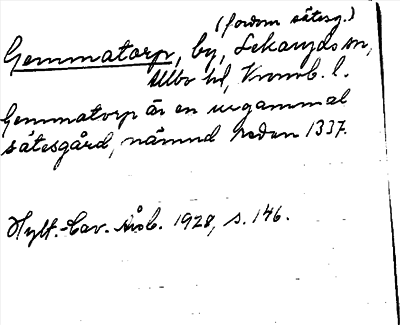 (fordom sätesg.)
Gemmatorp, by, Lekaryds sn,
Allbo hd, Kronob. l.
Gemmatorp är en urgammal
sätesgård, nämnd redan 1337.
Hylt.-Cav. Årsb. 1928, s. 146.